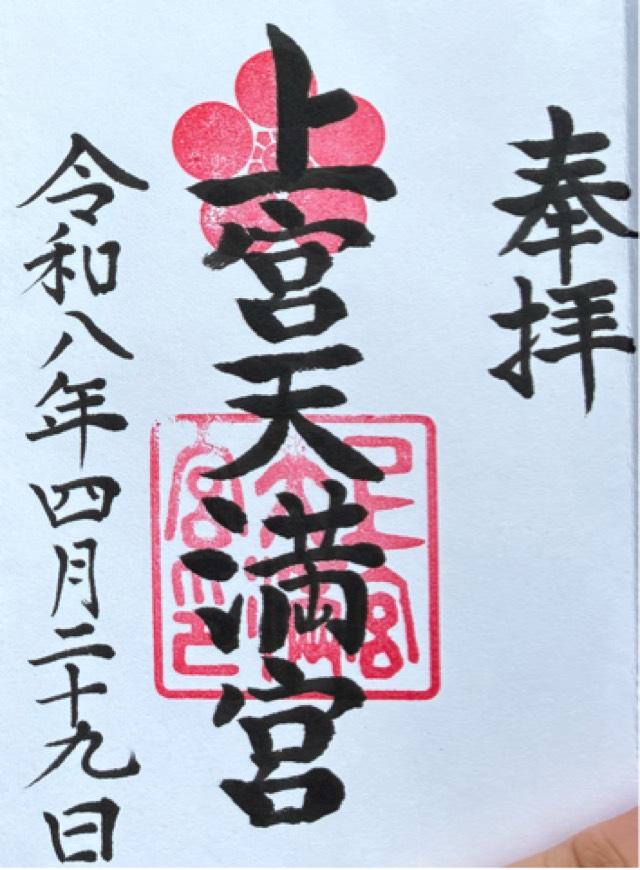 奉拝
上宮天満宮
令和八年四月二十九日